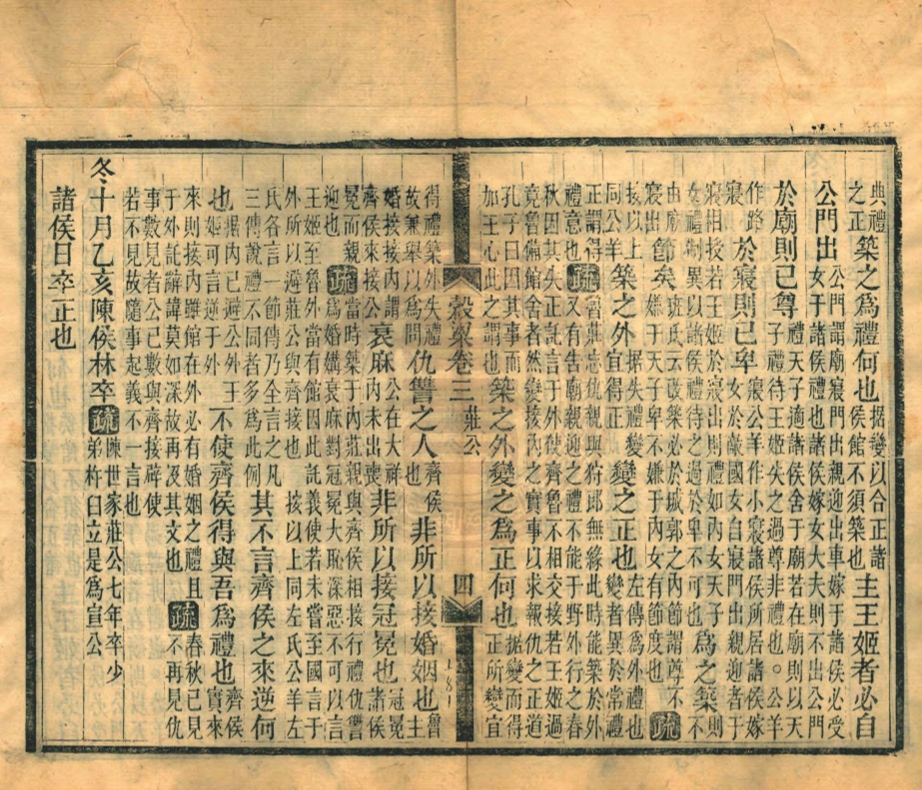 典禮之正築之爲禮何也据變以合正諸侯館不須築也主王姬者必自
公門出公門謂廟寢門出親迎出車嫁于諸侯必受女于諸侯禮也諸侯嫁女大夫則不出公門
於廟則已尊禮天子適諸侯舍于廟若在廟則以天子禮待王姬失之過尊非禮也。公羊
作路寢於寢則已卑寢公羊作小寢諸侯所居諸侯嫁女於敵國女自寢門出親迎者于
寢相授若王姬於寢出則禮如內女天子女禮制異以諸侯禮待之過於卑不可也爲之築則不
由廟寢出節矣班氏云改築必於城郭之內節謂尊不嫌于天子卑不嫌于內女有節度也疏
按以上同公羊築之外据失禮變宜得正變之正也左傳爲外禮也變者異於常禮
正謂得禮意也疏魯莊忘仇親與狩郎無緣此時能築於外又有告廟親迎之禮不能于野外行之春
秋因其失正託言于外使齊魯不相交接若王姬過竟魯備館舍者然變接內之實事以求報仇之正道
孔子曰因其事而加王心此之謂也築之外變之爲正何也据變而得正所變宜
穀梁卷三 莊公 四
得禮築外失禮故兼舉以爲問仇讐之人齊侯也非所以接婚姻也魯主
婚接接內謂齊侯來接公衰麻公在大祥內未出喪非所以接冠冕也冠冕諸侯
冕而親迎也疏當時築于內莊親與齊侯相接行禮仇讐爲婚媾衰麻對冠冕大恥深惡不可以言
王姬至魯外當有館因此託義使若未嘗至國言于外所以避莊公與齊接也 按以上同左氏公羊左
氏各言一節傳乃全言之凡三傳說禮不同者多爲此例其不言齊侯之來逆何
也据內已避公外王姬可言逆于外不使齊侯得與吾爲禮也齊侯實來
來則接內雖館在外必有婚姻之禮且于外託辭諱莫如深故再沒其文也疏春秋已見不再見仇
事數見者公已數與齊接辟使若不見故隨事起義不一言也
冬十月乙亥陳侯林卒疏陳世家莊公七年卒少弟杵臼立是爲宣公
諸侯日卒正也